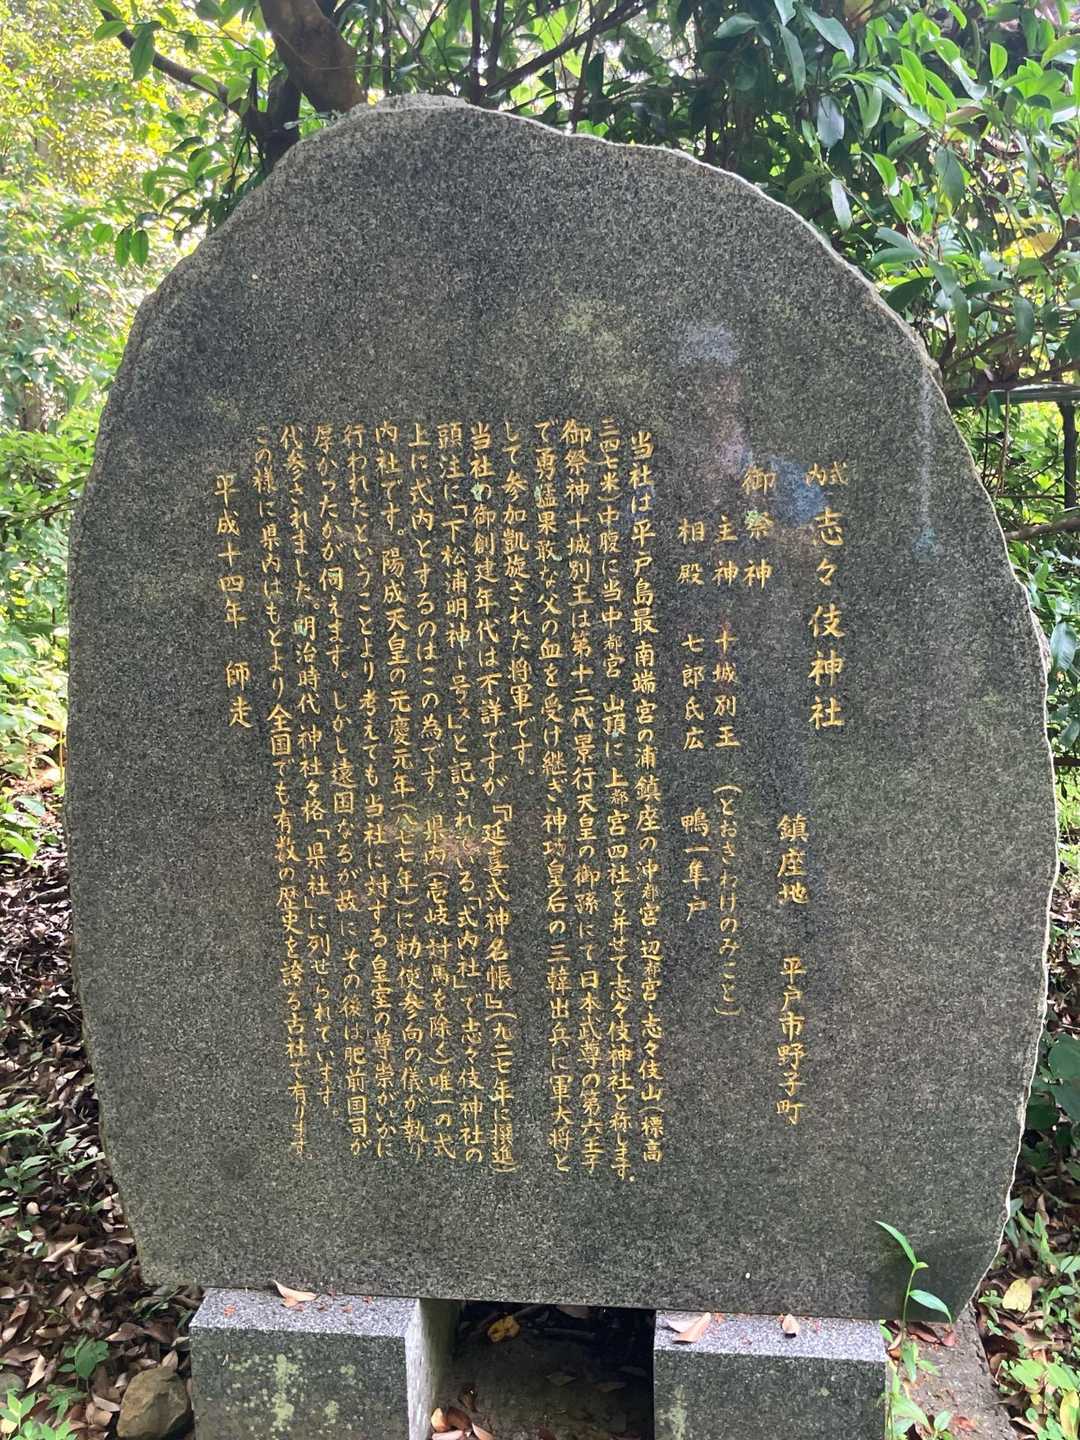 式内 志々伎神社
鎮座地 平戸市野子町
御祭神
主神 十城別王 (とおきわけのみこと)
相殿 七郎氏広 鴨一隼戸
当社は平戸島最南端宮の浦鎮座の沖都宮・辺都宮・志々伎山(標高
三四七米)中腹に当中都宮 山頂に上都宮四社を并せて志々伎神社と称します。
御祭神十城別王は第十二代景行天皇の御孫にて日本武尊の第六王子
で勇猛果敢な父の血を受け継ぎ神功皇后の三韓出兵に軍大将と
して参加凱旋された将軍です。
当社の御創建年代は不詳ですが『延喜式神名帳』(九二七年に撰進)
頭注に「下松浦明神ト号ス」と記されている「式内社」で志々伎神社の
上に式内とするのはこの為です。県内(壱岐対馬を除く)唯一の式
内社です。陽成天皇の元慶元年(八七七年)に勅使参向の儀が執り
行われたということより考えても当社に対する皇室の尊崇がいかに
厚かったかが伺えます。しかし遠国なるが故にその後は肥前国司が
代参されました。明治時代神社々格「県社」に列せられています。
この様に県内はもとより全国でも有数の歴史を誇る古社で有ります。
平成十四年 師走